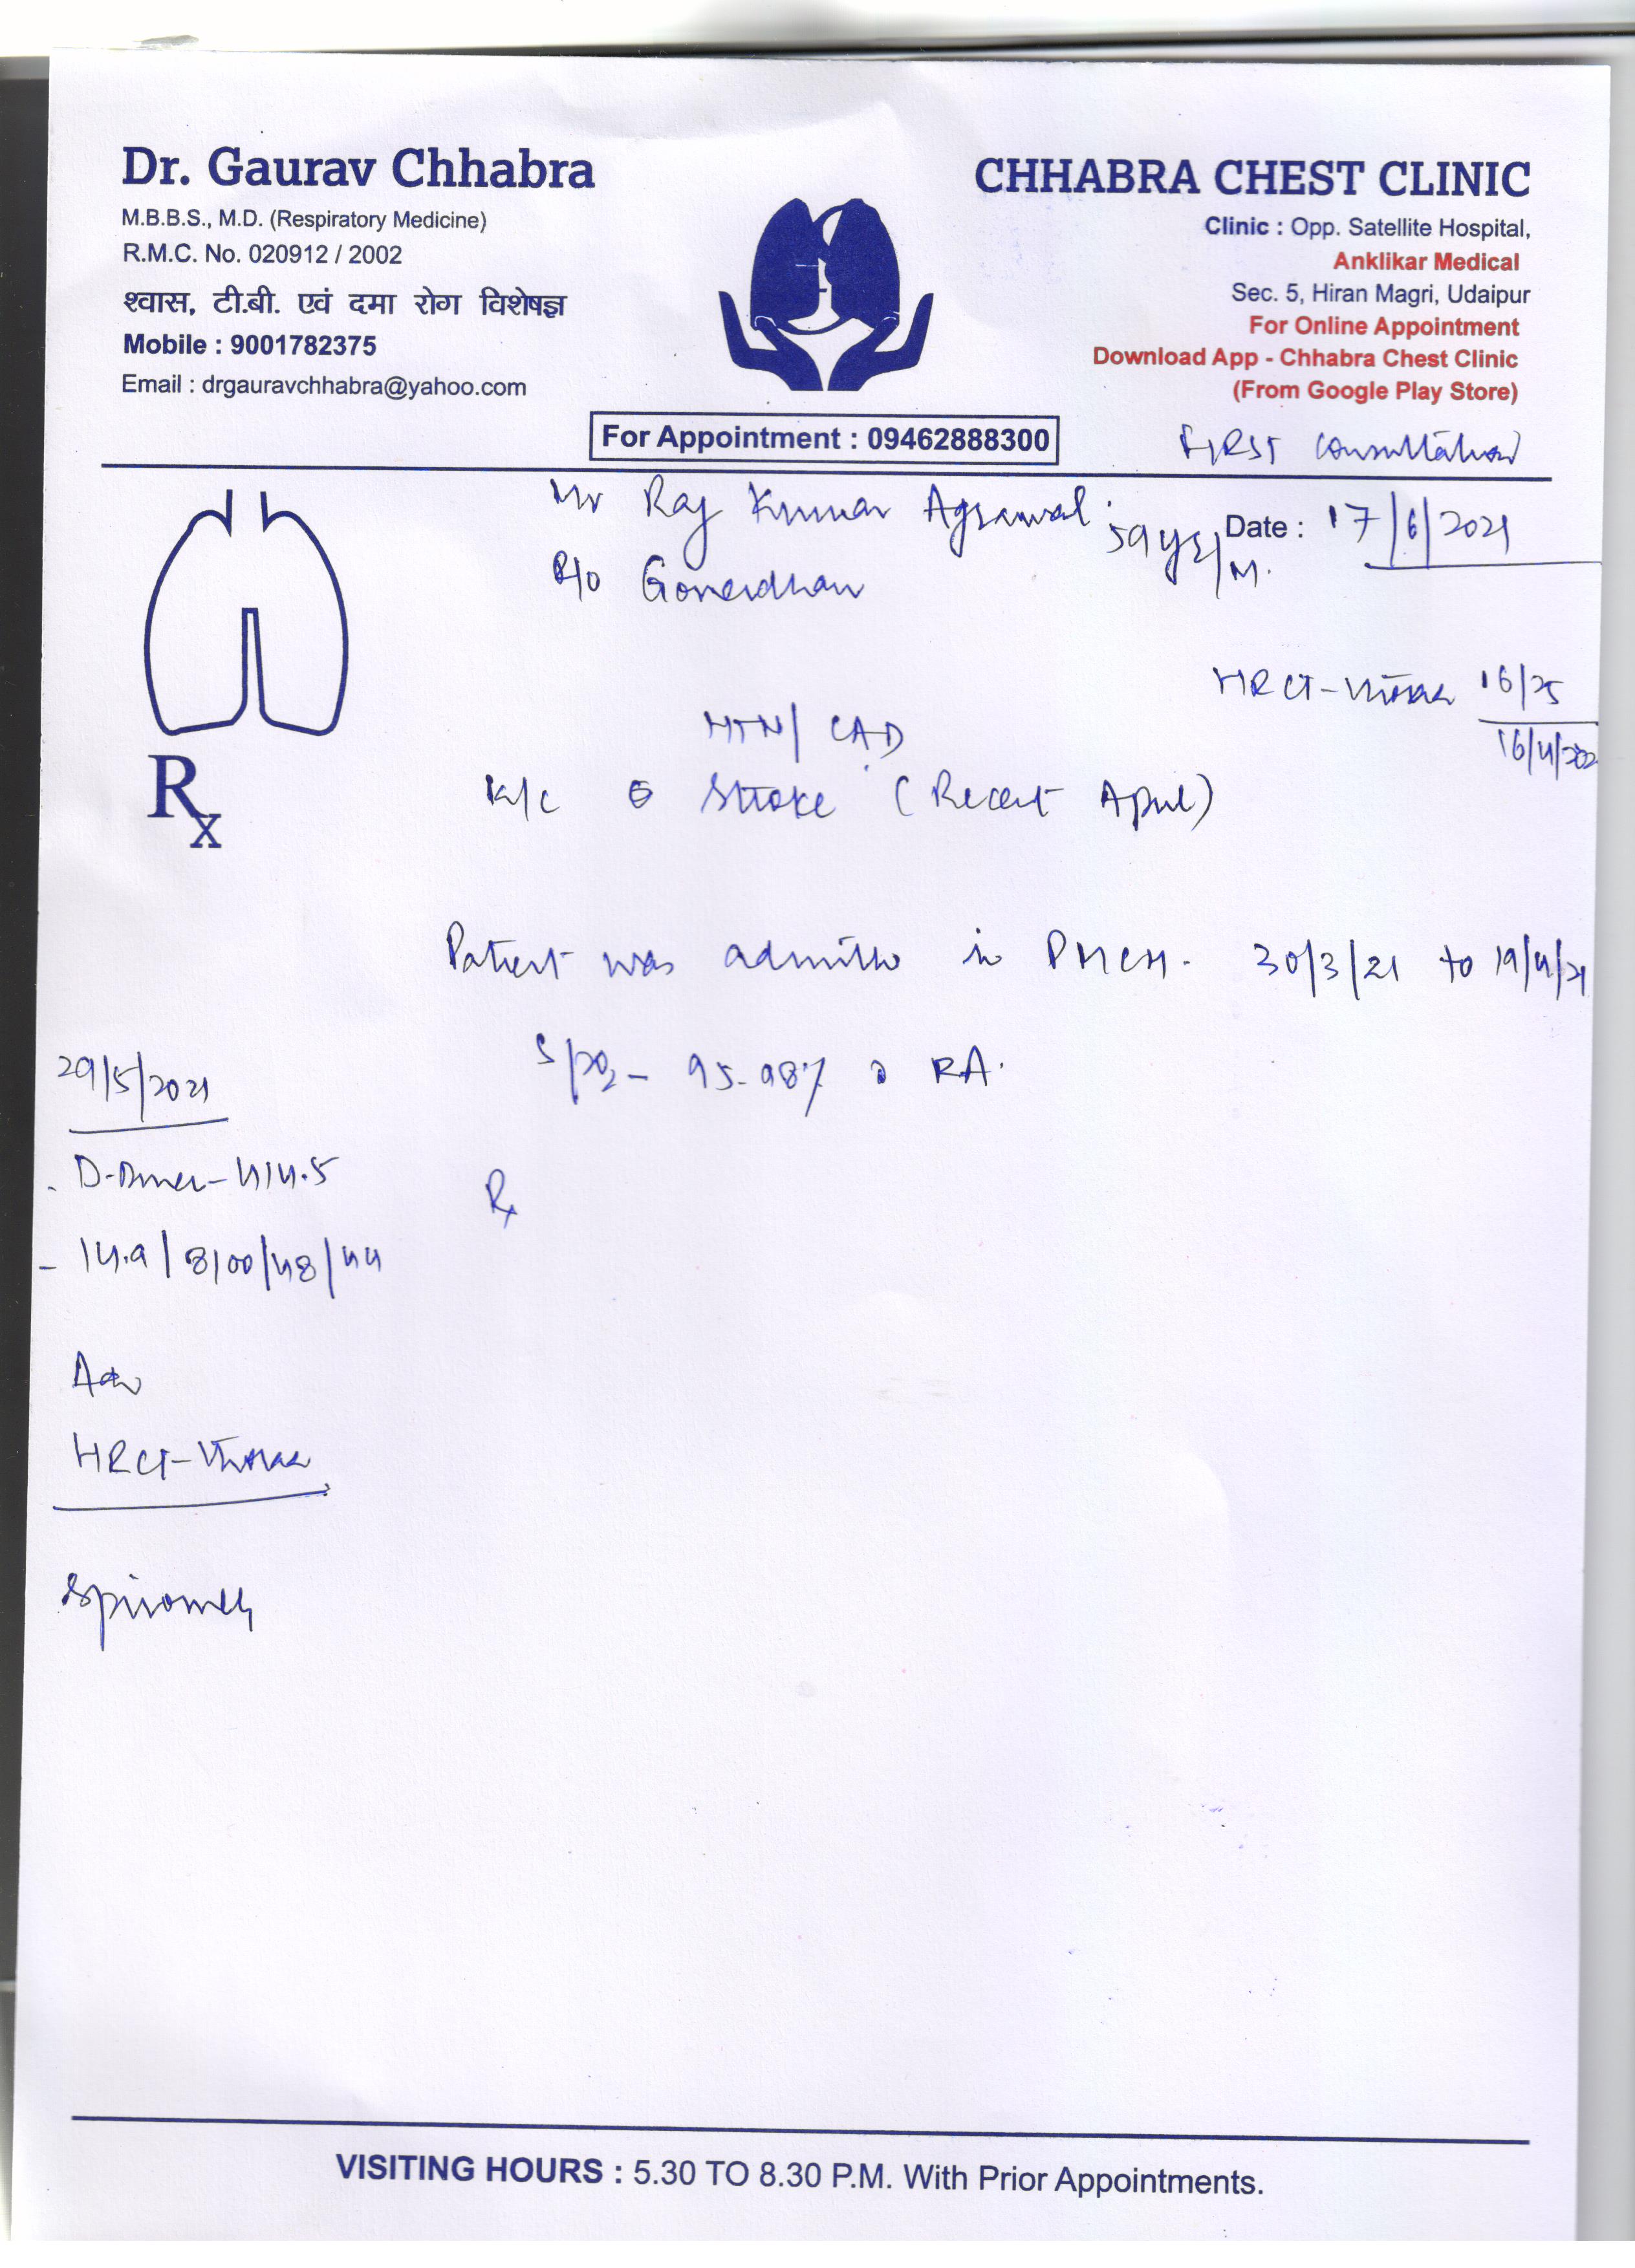 Dr. Gaurav Chhabra
M.B.B.S., M.D. (Respiratory Medicine)
R.M.C. No. 020912 / 2002
श्वास, टी.बी. एवं दमा रोग विशेषज्ञ
Mobile : 9001782375
Email : drgauravchhabra@yahoo.com
CHHABRA CHEST CLINIC
Clinic : Opp. Satellite Hospital,
Anklikar Medical
Sec. 5, Hiran Magri, Udaipur
For Online Appointment
Download App - Chhabra Chest Clinic
(From Google Play Store)
For Appointment : 09462888300
FIRST Consultation
Mr Raj Kumar Agrawal 59yrs/M.
Date : 17/6/2021
R/o Goverdhan
HRCT-Thorax 16/25
16/4/202
HTN/ CAD
Rx
K/c Stroke (Recent April)
Patient was admitted in PMCH. 30/3/21 to 19/4/21
SpO2 - 95-98% RA.
29/5/2021
- D-Dimer - 414.5
Rx
- 14.9/8100/48/44
Adv
HRCT-Thorax
Spirometry
VISITING HOURS : 5.30 TO 8.30 P.M. With Prior Appointments.